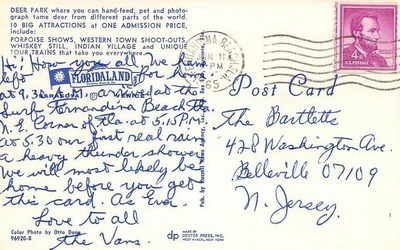 DEER PARK where you can hand-feed, pet and photo-
graph tame deer from different parts of the world.
10 BIG ATTRACTIONS at ONE ADMISSION PRICE,
include:
PORPOISE SHOWS, WESTERN TOWN SHOOT-OUTS,
WHISKEY STILL, INDIAN VILLAGE and UNIQUE
TOUR TRAINS that take you everywhere.
Hi! How you all we have
left for home
FLORIDALAND
SARASOTA VENICE
at 9.30 A.M. arrived at the
Surf Fernandina Beach Fla.
N.E. Corner of Fla. at 5.15 P.M.
at 5.30 our first real rain
a heavy thunder shower
We will most likely be
home before you get
this card. As Ever.
Love to all
the Vans.
Color Photo by Otto Done
96920-B
Pub. by
MADE BY
dp DEXTER PRESS, INC.
WEST NYACK, NEW YORK
BEACH
JUN 11
PM
1965
4¢
U.S. POSTAGE
Post Card
The Bartletts
428 Washington Ave.
Belleville 07109
N. Jersey.